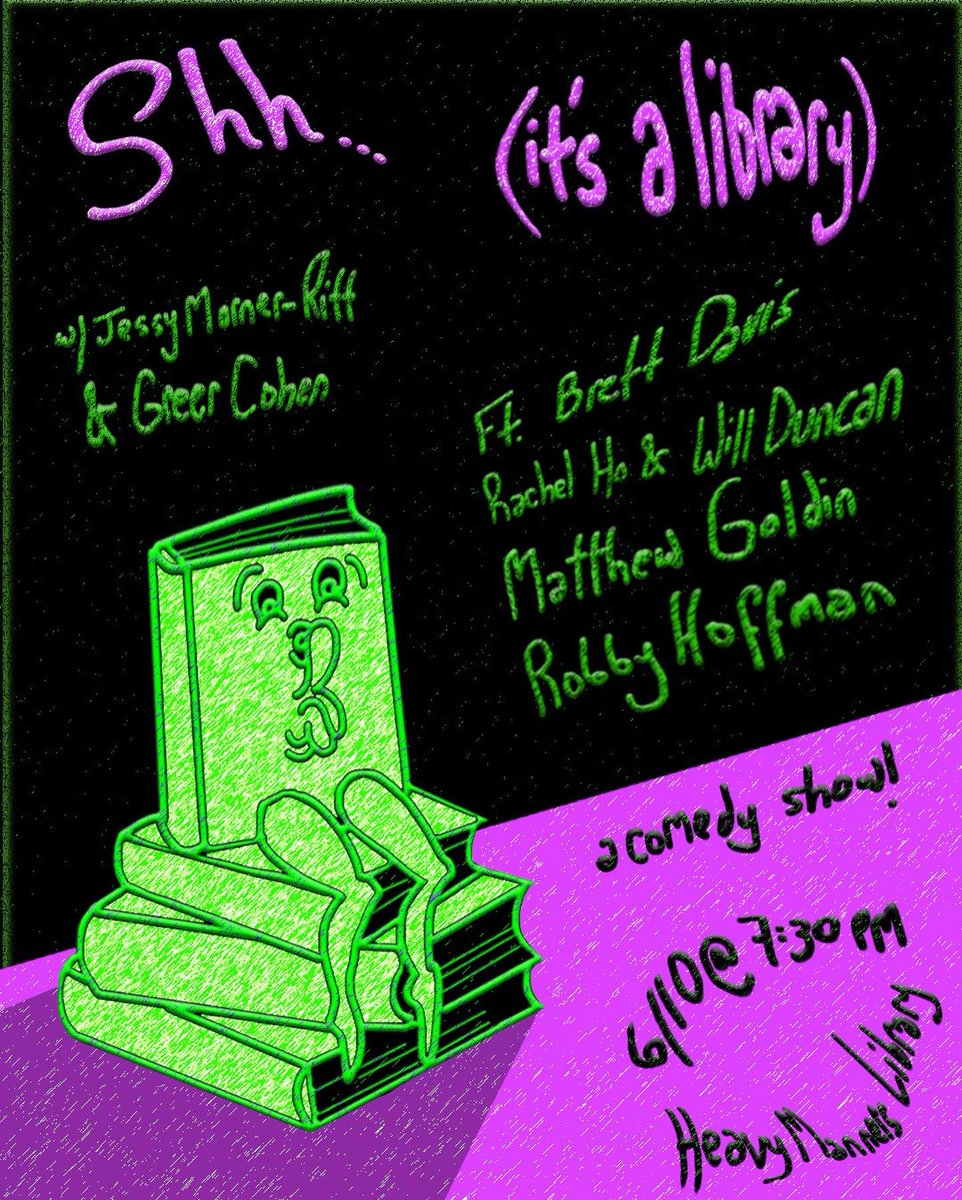 Shh...
(it's a library)
w/ Jessy Morner-Ritt
& Greer Cohen
Ft. Brett Davis
Rachel Ho & Will Duncan
Matthew Goldin
Robby Hoffman
a comedy show!
6/10 @ 7:30 PM
Heavy Manners Library